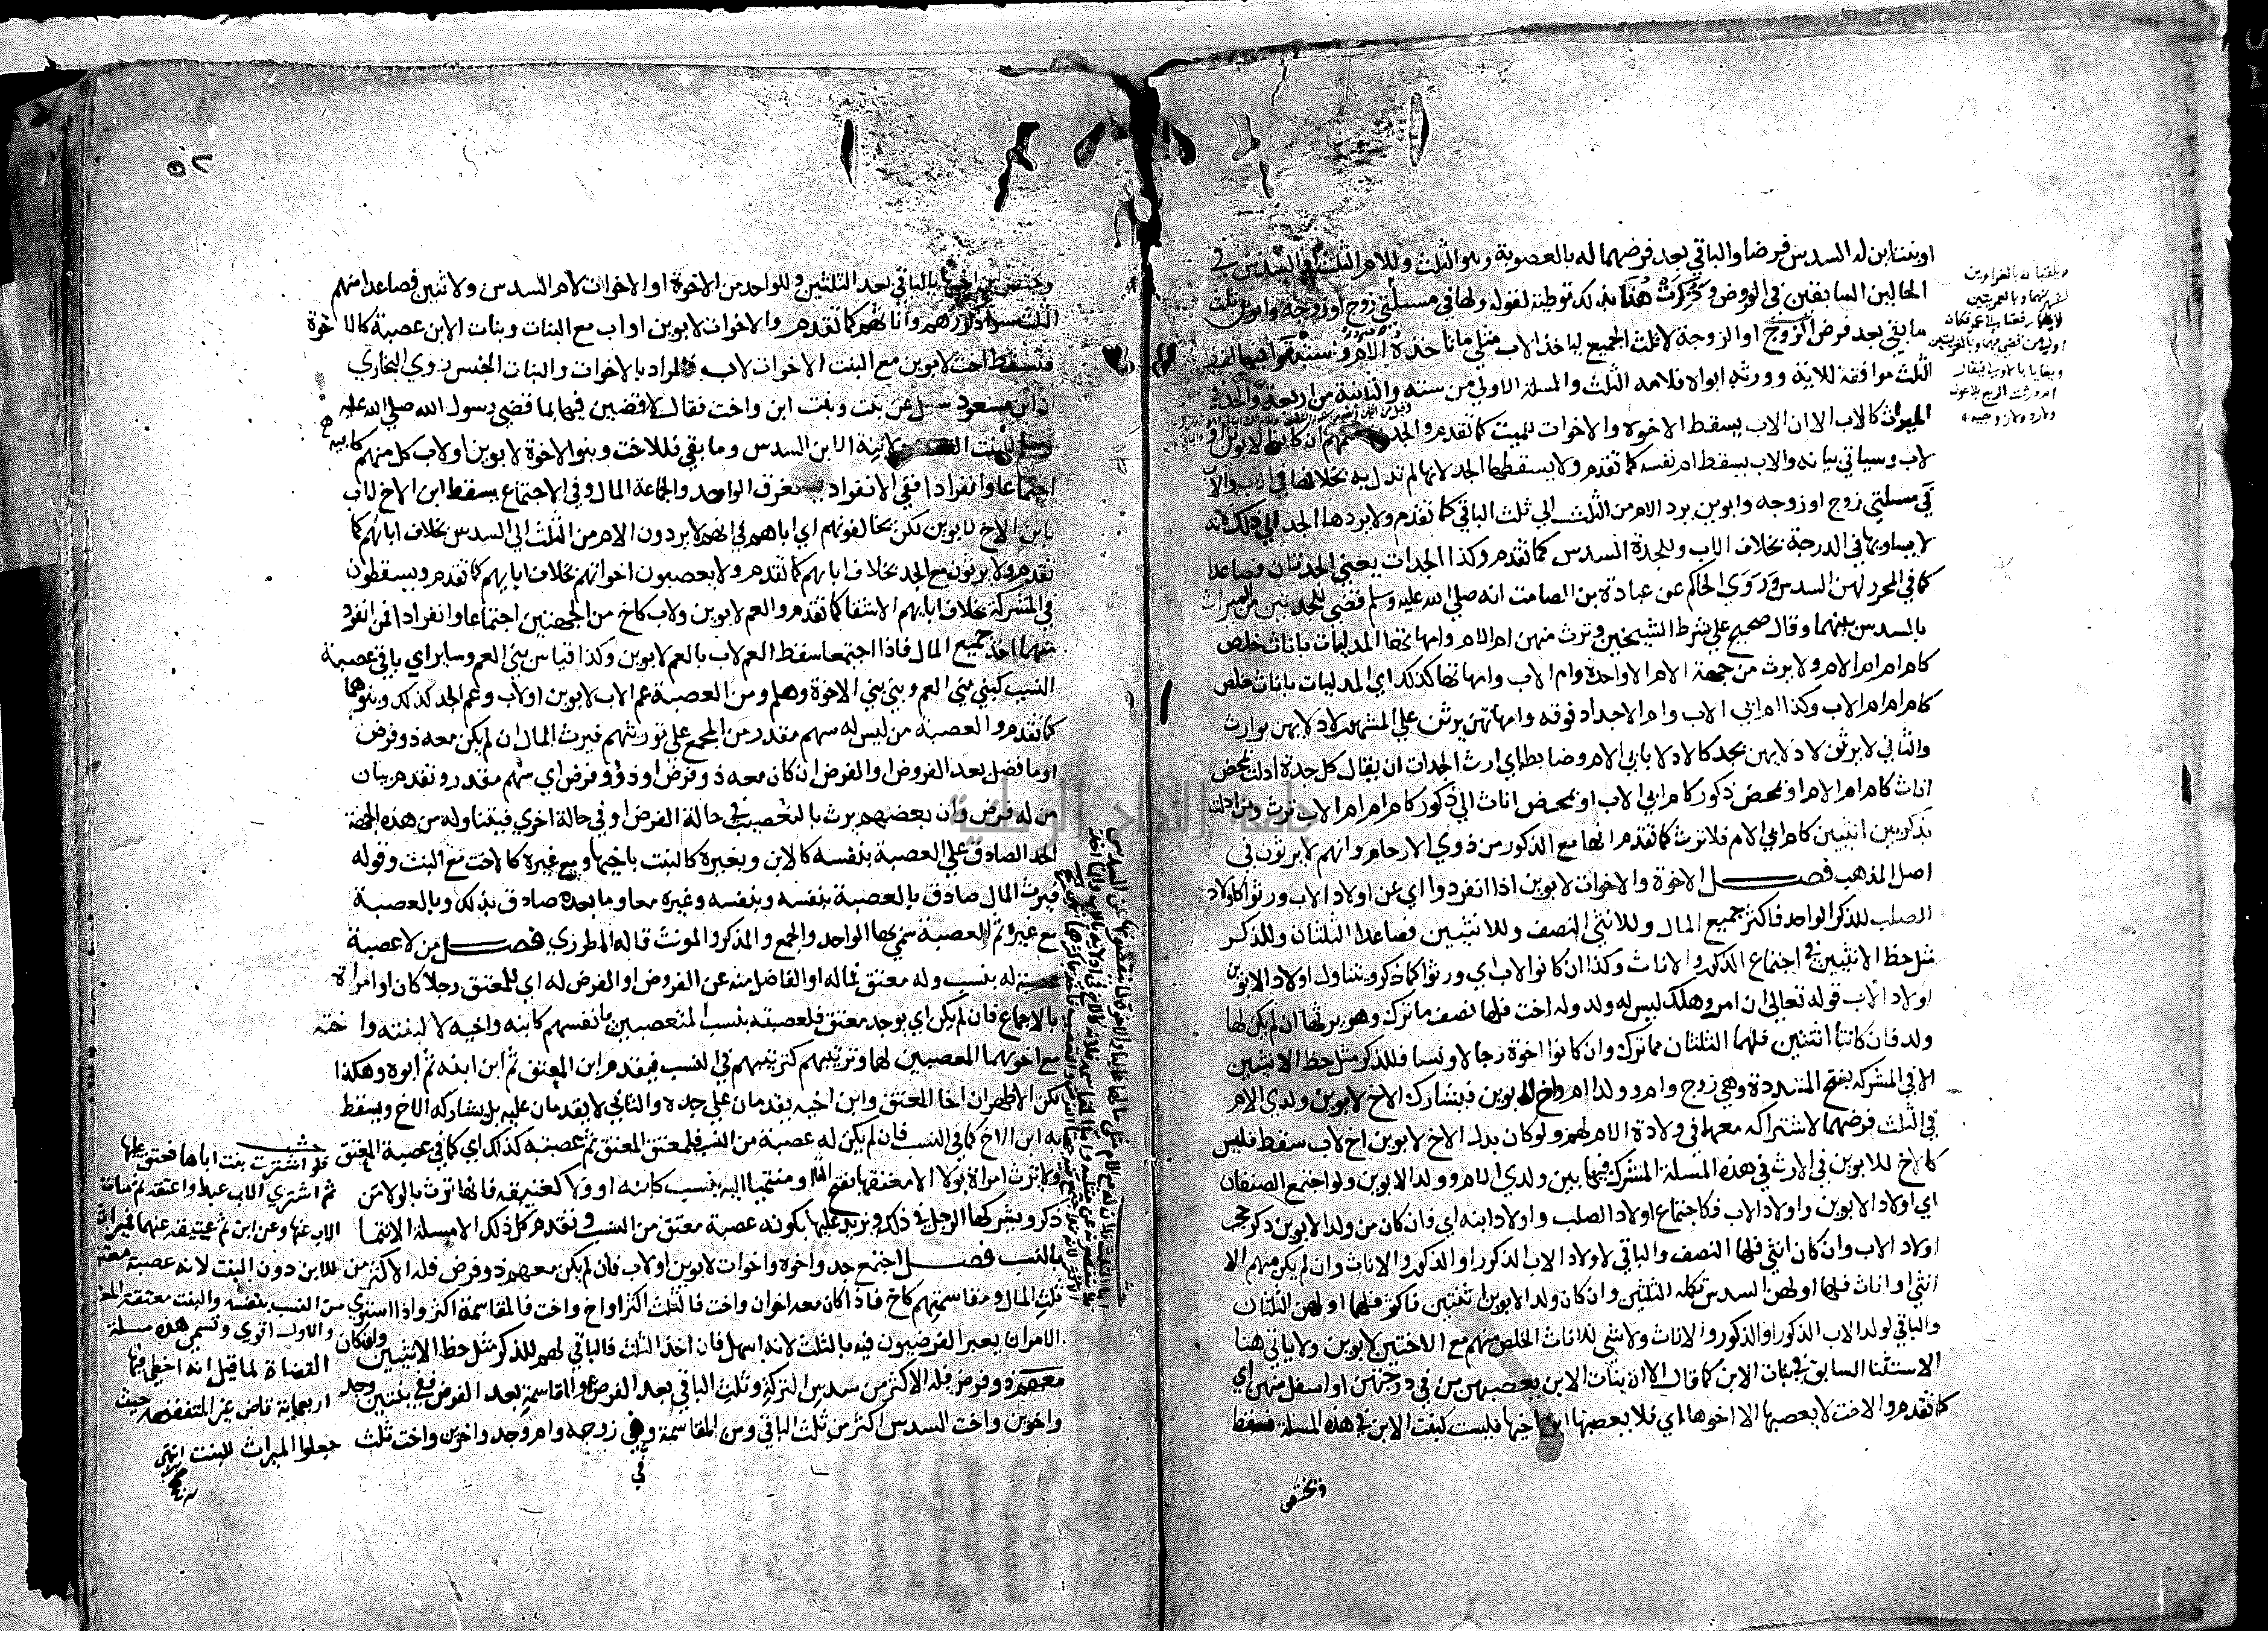 او بنت ابن له السدس فرضا والباقي بعد فرضهما له بالعصوبة وللام الثلث او السدس في
الحالين السابقين في الفروض وذكرت هنا بذلك توطئة لقوله ولها في مسئلتي زوج او زوجة وابوين ثلث
ما بقي بعد فرض الزوج او الزوجة لا ثلث الجميع لياخذ الاب مثلي ما تاخذه الام
الثلث موافقة للاية وورثه ابواه فلامه الثلث والمسئلة الاولي من ستة والثانية من اربعة والجد في
الميراث كالاب الا ان الاب يسقط الاخوة والاخوات للميت كما تقدم والجد
لاب وسياتي بيانه والاب يسقط ام نفسه كما تقدم ولا يسقطها الجد لانها لم تدل به بخلافها في الاب والاب
في مسئلتي زوج او زوجه وابوين يرد الام من الثلث الي ثلث الباقي كما تقدم ولا يردها الجد الي ذلك لانه
لا يساويها في الدرجة بخلاف الاب وللجدة السدس كما تقدم وكذا الجدات يعني الجدتان فصاعدا
كما في المحرر لهن السدس وروي الحاكم عن عبادة بن الصامت انه صلي الله عليه وسلم قضي للجدتين من الميراث
بالسدس بينهما وقال صحيح علي شرط الشيخين وترث منهن ام الام وامهاتها المدليات باناث خلص
كام ام ام الام ولا يرث من جهة الام الا واحدة وام الاب وامهاتها كذلك اي المدليات باناث خلص
كام ام ام الاب وكذا ام ابي الاب وام الاجداد فوقه وامهاتهن يرثن علي المشهور لادلايهن بوارث
والثاني لا يرثن لادلايهن بجد كالادلا بابي الام وضابطها اي ارث الجدات ان يقال كل جدة ادلت بمحض
اناث كام ام الام او بمحض ذكور كام ابي الاب او بمحض اناث الي ذكور كام ام ام الاب ترث ومن ادلت
بذكر بين انثيين كام ابي الام فلا ترث كما تقدم انها مع الذكور من ذوي الارحام وانهم لا يرثون في
اصل المذهب فصل الاخوة والاخوات لابوين اذا انفردوا اي عن اولاد الاب ورثوا كاولاد
الصلب للذكر الواحد فاكثر جميع المال وللانثي النصف وللانثيين فصاعدا الثلثان وللذكر
مثل حظ الانثيين في اجتماع الذكور والاناث وكذا ان كانوا لاب اي ورثوا كما ذكر ويتناول اولاد الابوين
اولاد الاب قوله تعالي ان امرو هلك ليس له ولد وله اخت فلها نصف ما ترك وهو يرثها ان لم يكن لها
ولد فان كانتا اثنتين فلهما الثلثان مما ترك وان كانوا اخوة رجالا ونسا فللذكر مثل حظ الانثيين
الا في المشركة بفتح المشددة وهي زوج وام وولدا ام واخ لابوين فيشارك الاخ لابوين ولدي الام
في الثلث فرضهما لاشتراكه معهما في ولادة الام لهم ولو كان بدل الاخ لابوين اخ لاب سقط فليس
كالاخ للابوين في الارث في هذه المسئلة المشرك فيها بين ولدي الام وولد الابوين ولو اجتمع الصنفان
اي اولاد الابوين واولاد الاب فكاجتماع اولاد الصلب واولاد ابنه اي فان كان من ولد الابوين ذكر حجب
اولاد الاب وان كان انثي فلها النصف والباقي لاولاد الاب الذكور او الذكور والاناث وان لم يكن منهم الا
انثي او اناث فلها او لهن السدس تكملة الثلثين وان كان ولد الابوين اثنتين فاكثر فلهما او لهن الثلثان
والباقي لولد الاب الذكور او الذكور والاناث ولا شي للاناث الخلص منهم مع الاختين لابوين ولا ياتي هنا
الاستثنا السابق في بنات الابن كما قال الا ان بنات الابن يعصبهن من في درجتهن او اسفل منهن اي
كما تقدم والاخت لا يعصبها الا اخوها اي فلا يعصبها ابن اخيها فليست كبنت الابن في هذه المسئلة فتسقط
وتختص
٥٢
ويختص ابن اخيها بالباقي بعد الثلثين وللواحد من الاخوة او الاخوات لام السدس ولاثنين فصاعدا منهم
الثلث سوا ذكورهم واناثهم كما تقدم والاخوات لابوين او اب مع البنات وبنات الابن عصبة كالاخوة
فتسقط اخت لابوين مع البنت الاخوات لاب والمراد بالاخوات والبنات الجنس روي البخاري
ان ابن مسعود سيل عن بنت وبنت ابن واخت فقال لاقضين فيها بما قضي رسول الله صلي الله عليه
وسلم للبنت النصف ولابنة الابن السدس وما بقي فللاخت وبنو الاخوة لابوين او لاب كل منهم كابيه
اجتماعا وانفرادا ففي الانفراد يستغرق الواحد والجماعة المال وفي الاجتماع يسقط ابن الاخ لاب
بابن الاخ لابوين لكن يخالفونهم اي اباهم في انهم لا يردون الام من الثلث الي السدس بخلاف ابائهم كما
تقدم ولا يرثون مع الجد بخلاف ابائهم كما تقدم ولا يعصبون اخواتهم بخلاف ابايهم كما تقدم ويسقطون
في المشركة بخلاف ابايهم الاشقا كما تقدم والعم لابوين ولاب كاخ من الجهتين اجتماعا وانفرادا فمن انفرد
منهما اخذ جميع المال فاذا اجتمعا سقط العم لاب بالعم لابوين وكذا قياس بني العم وساير اي باقي عصبة
النسب كبني بني العم وبني بني الاخوة وهلم ومن العصبة عم الاب لابوين او لاب وعم الجد كذلك وبنوهما
كما تقدم والعصبة من ليس له سهم مقدر من المجمع علي توريثهم فيرث المال ان لم يكن معه ذو فرض
او ما فضل بعد الفروض او الفرض ان كان معه ذو فرض او ذوو فرض اي سهم مقدر وتقدم بيان
من له فرض وان بعضهم يرث بالتعصيب في حالة الفرض او في حالة اخري فيتناوله من هذه الجهة
الحد الصادق علي العصبة بنفسه كالابن وبغيره كالبنت باخيها ومع غيره كالاخت مع البنت وقوله
فيرث المال صادق بالعصبة بنفسه وبنفسه وغيره معا وما بعده صادق بذلك وبالعصبة
مع غيره ثم العصبة سمي بها الواحد والجمع والمذكر والمونث قاله المطرزي فصل من لا عصبة
له بنسب وله معتق فماله او الفاضل منه عن الفروض او الفرض له اي للمعتق رجلا كان او امراة
بالاجماع فان لم يكن اي يوجد معتق فلعصبته بنسب المتعصبين بانفسهم كابنه واخيه لا لبنته واخته
مع اخويهما المعصبين لهما وترتيبهم كترتيبهم في النسب فيقدم ابن المعتق ثم ابن ابنه ثم ابوه وهكذا
لكن الاظهر ان اخا المعتق وابن اخيه يقدمان علي جده والثاني لا يقدمان عليه بل يشاركه الاخ ويسقط
به ابن الاخ كما في النسب فان لم يكن له عصبة من النسب فلمعتق المعتق ثم عصبته كذلك اي كما في عصبة المعتق
ولا ترث امراة بولا الا معتقها بفتح التا او منتميا اليه بنسب كابنه او ولا كعتيقه فانها ترث بالولا من
ذكر ويشركها الرجل في ذلك ويزيد عليها بكونه عصبة معتق من النسب وتقدم كل ذلك الا مسئلة الانتما
بالنسب فصل اجتمع جد واخوة واخوات لابوين او لاب فان لم يكن معهم ذو فرض فله الاكثر من
ثلث المال ومقاسمتهم كاخ فاذا كان معه اخوان واخت فالثلث اكثر او اخ واخت فالمقاسمة اكثر واذا استوي
الامران يعبر الفرضيون فيه بالثلث لانه اسهل فان اخذ الثلث فالباقي لهم للذكر مثل حظ الانثيين وان كان
معهم ذو فرض فله الاكثر من سدس التركة وثلث الباقي بعد الفرض والمقاسمة بعد الفرض ففي بنتين وجد
واخوين واخت السدس اكثر من ثلث الباقي ومن المقاسمة وفي زوجه وام وجد واخوين واخت ثلث
فلو اشترت بنت اباها فعتق عليها
ثم اشتري الاب عبدا واعتقه ثم مات
الاب عنها وعن ابن ثم عتيقه عنهما فميراثه
للابن دون البنت لانه عصبة معتق
من النسب بنفسه والبنت معتقة المعتق
والاول اقوي وتسمي هذه مسئلة
القضاة لما قيل انه اخطي فيها
اربعماية قاض غير المتفقهة حيث
جعلوا الميراث للبنت انتهي